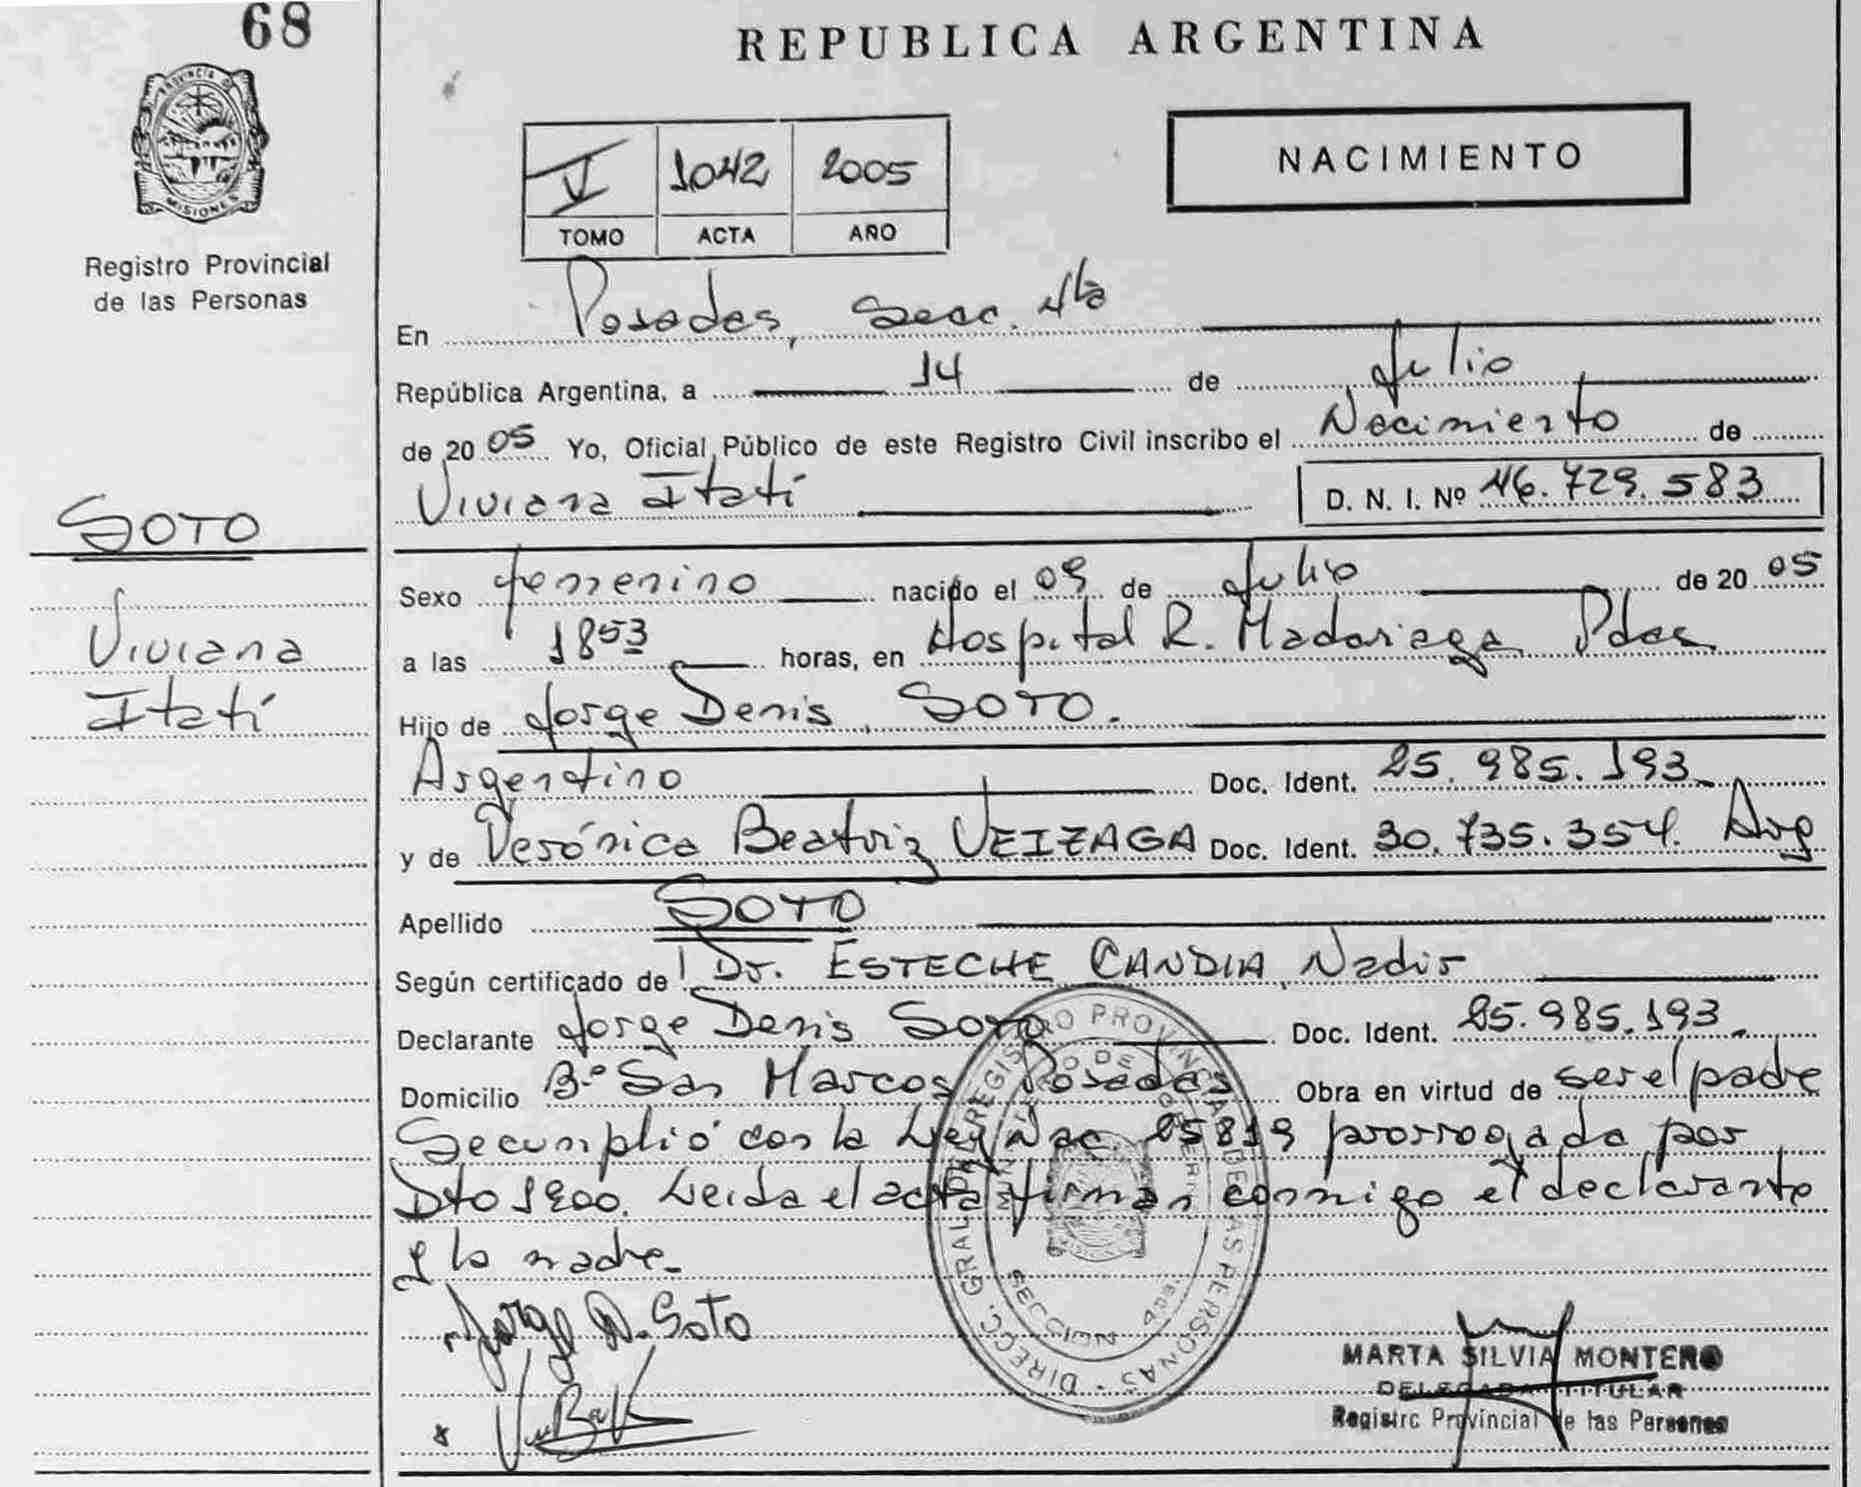 68
PROVINCIA DE
MISIONES
Registro Provincial
de las Personas
SOTO
Viviana
Itatí
REPUBLICA ARGENTINA
V 1042 2005
TOMO ACTA AÑO
NACIMIENTO
En Posadas, Secc. 4ta
República Argentina, a 14 de Julio
de 2005 Yo, Oficial Público de este Registro Civil inscribo el Nacimiento de
Viviana Itatí D. N. I. Nº 46.729.583
Sexo femenino nacido el 09 de Julio de 2005
a las 1853 horas, en Hospital R. Madariaga Pdas
Hijo de Jorge Denis, SOTO.
Argentino Doc. Ident. 25.985.193
y de Verónica Beatriz VEIZAGA Doc. Ident. 30.735.354. Arg
Apellido SOTO
Según certificado de Dr. ESTECHE CANDIA Nadir
Declarante Jorge Denis Soto Doc. Ident. 25.985.193.
Domicilio Bº San Marcos Posadas Obra en virtud de ser el padre
Se cumplió con la Ley Nac. 25819 prorrogada por
Dto 1900. Leida el acta firman conmigo el declarante
y la madre.
Jorge D. Soto
DIRECC. GRAL. DEL REGISTRO PROVINCIAL DE LAS PERSONAS
SECCION 4ta.
MARTA SILVIA MONTERO
DELEGADA TITULAR
Registro Provincial de las Personas